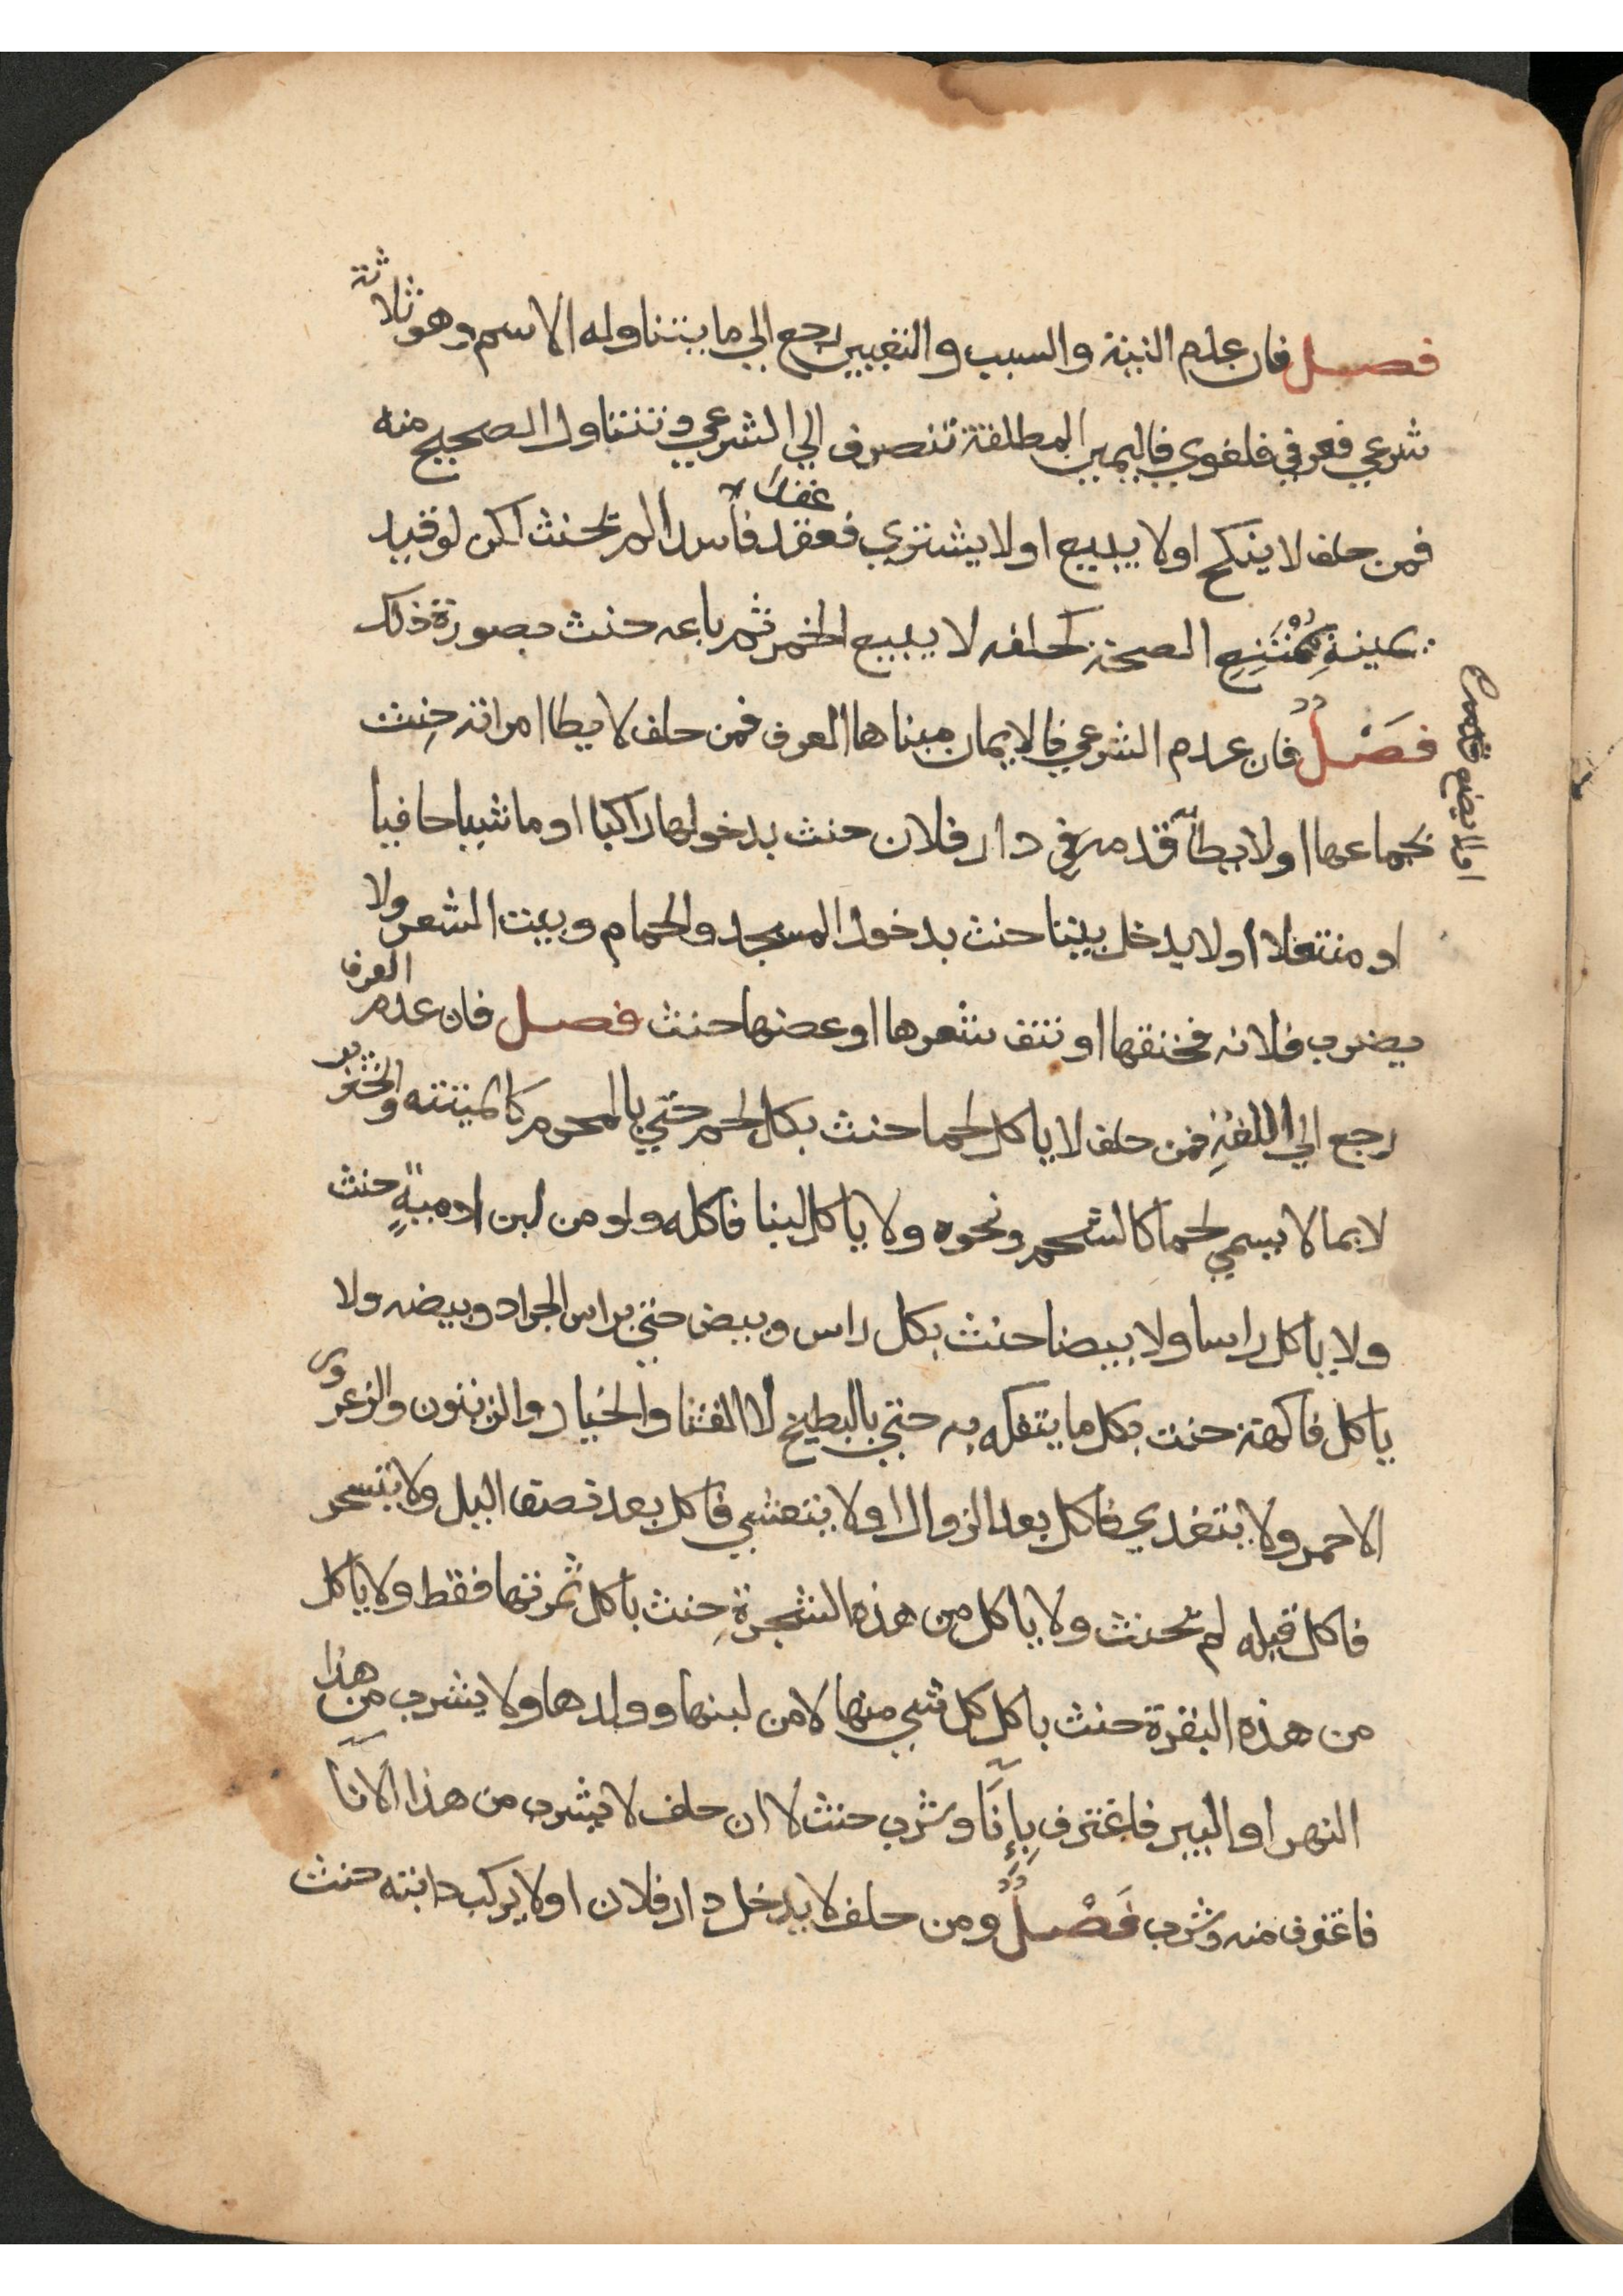 فصل فان عدم النية والسبب والتعيين رجع الي ما يتناوله الاسم وهو ثلاثة
شرعي فعرفي فلغوي فاليمين المطلقة تنصرف الي الشرعي وتتناول الصحيح منه
فمن حلف لا ينكح او لا يبيع او لا يشتري فعقد عقدا فاسدا لم يحنث لكن لو قيد
يمينه بممتنع الصحة كحلفه لا يبيع الخمر ثم باعه حنث بصورة ذلك
فصل فان عدم الشرعي فالايمان مبناها العرف فمن حلف لا يطا امراته حنث
بجماعها او لا يطأ قدمه في دار فلان حنث بدخولها راكبا او ماشيا حافيا
او لا يضع قدمه
او منتعلا او لا يدخل بيتا حنث بدخول المسجد والحمام وبيت الشعر ولا
يضرب فلانه فخنقها او نتف شعرها او عضها حنث فصل فان عدم العرف
رجع الي اللغة فمن حلف لا ياكل لحما حنث بكل لحم حتي بالمحرم كالميتته والخنزير
لا بما لا يسمي لحما كالشحم ونحوه ولا ياكل لبنا فاكله ولو من لبن ادمية حنث
ولا ياكل راسا ولا بيضا حنث بكل راس وبيض حتي براس الجراد وبيضه ولا
ياكل فاكهة حنث بكل ما يتفكه به حتي بالبطيخ لا القثا والخيار والزيتون والزعرور
الاحمر ولا يتغدي فاكل بعد الزوال او لا يتعشي فاكل بعد نصف اليل ولا يتسحر
فاكل قبله لم يحنث ولا ياكل من هذه الشجرة حنث باكل ثمرتها فقط ولا ياكل
من هذه البقرة حنث باكل كل شي منها لا من لبنها وولدها ولا يشرب من هذا
النهر او البير فاغترف بإنآ وشرب حنث لا ان حلف لا يشرب من هذا الانآ
فاغترف منه وشرب فصل ومن حلف لا يدخل دار فلان او لا يركب دابته حنث